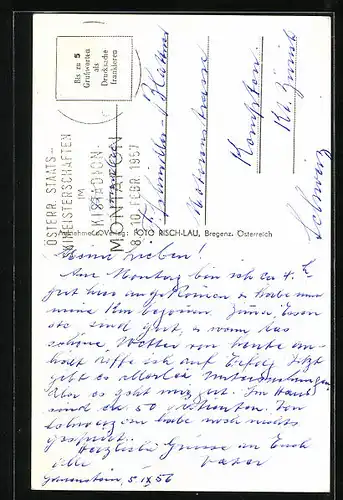 Bis zu 5
Grußworten
als
Drucksache
frankieren
ÖSTERR. STAATS-
SKIMEISTERSCHAFTEN
IM
SKISTADION
MONTAFON
8.-10. FEBR. 1957
Familie
Kempten
Kt. Zürich
Schweiz
FOTO RISCH-LAU, Bregenz, Österreich
Meine Lieben!
Am Montag bin ich ca 4
gut hier angekommen & habe nun
meine Kur begonnen. Zimmer, Essen
etc. sind gut, & wenn das
schöne Wetter von heute an-
hält hoffe ich auf Erfolg. Jetzt
gibt es allerlei Untersuchungen
aber es geht mir gut. Im Haus
sind ca 50 Patienten. Von
habe noch nichts
gespürt.
Herzliche Grüsse an Euch
alle Vater
5. IX 56